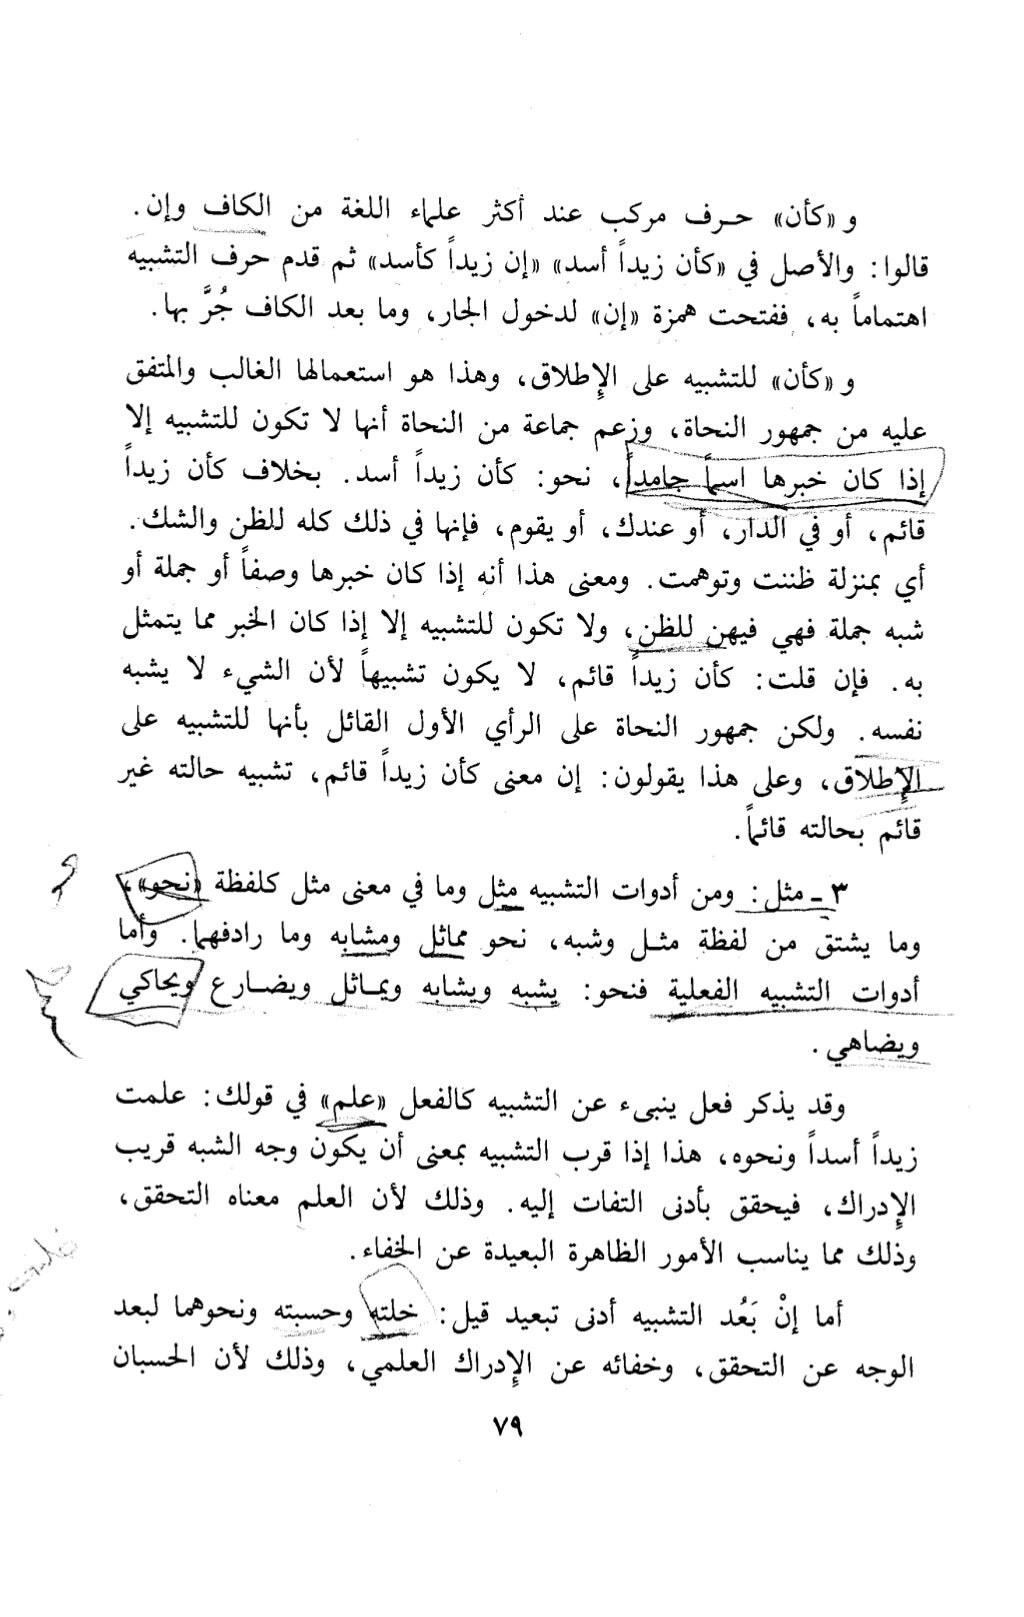 و «كأن» حرف مركب عند أكثر علماء اللغة من الكاف وإن.
قالوا: والأصل في «كأن زيداً أسد» «إن زيداً كأسد» ثم قدم حرف التشبيه
اهتماماً به، ففتحت همزة «إن» لدخول الجار، وما بعد الكاف جُرَّ بها.
و «كأن» للتشبيه على الإِطلاق، وهذا هو استعمالها الغالب والمتفق
عليه من جمهور النحاة، وزعم جماعة من النحاة أنها لا تكون للتشبيه إلا
إذا كان خبرها اسماً جامداً، نحو: كأن زيداً أسد. بخلاف كأن زيداً
قائم، أو في الدار، أو عندك، أو يقوم، فإنها في ذلك كله للظن والشك.
أي بمنزلة ظننت وتوهمت. ومعنى هذا أنه إذا كان خبرها وصفاً أو جملة أو
شبه جملة فهي فيهن للظن، ولا تكون للتشبيه إلا إذا كان الخبر مما يتمثل
به. فإن قلت: كأن زيداً قائم، لا يكون تشبيهاً لأن الشيء لا يشبه
نفسه. ولكن جمهور النحاة على الرأي الأول القائل بأنها للتشبيه على
الإِطلاق، وعلى هذا يقولون: إن معنى كأن زيداً قائم، تشبيه حالته غير
قائم بحالته قائماً.
٣ - مثل: ومن أدوات التشبيه مثل وما في معنى مثل كلفظة «نحو»،
وما يشتق من لفظة مثل وشبه، نحو مماثل ومشابه وما رادفهما. وأما
أدوات التشبيه الفعلية فنحو: يشبه ويشابه ويماثل ويضارع ويحاكي
ويضاهي.
وقد يذكر فعل ينبىء عن التشبيه كالفعل «علم» في قولك: علمت
زيداً أسداً ونحوه، هذا إذا قرب التشبيه بمعنى أن يكون وجه الشبه قريب
الإِدراك، فيحقق بأدنى التفات إليه. وذلك لأن العلم معناه التحقق،
وذلك مما يناسب الأمور الظاهرة البعيدة عن الخفاء.
أما إنْ بَعُد التشبيه أدنى تبعيد قيل: خلته وحسبته ونحوهما لبعد
الوجه عن التحقق، وخفائه عن الإِدراك العلمي، وذلك لأن الحسبان
٧٩